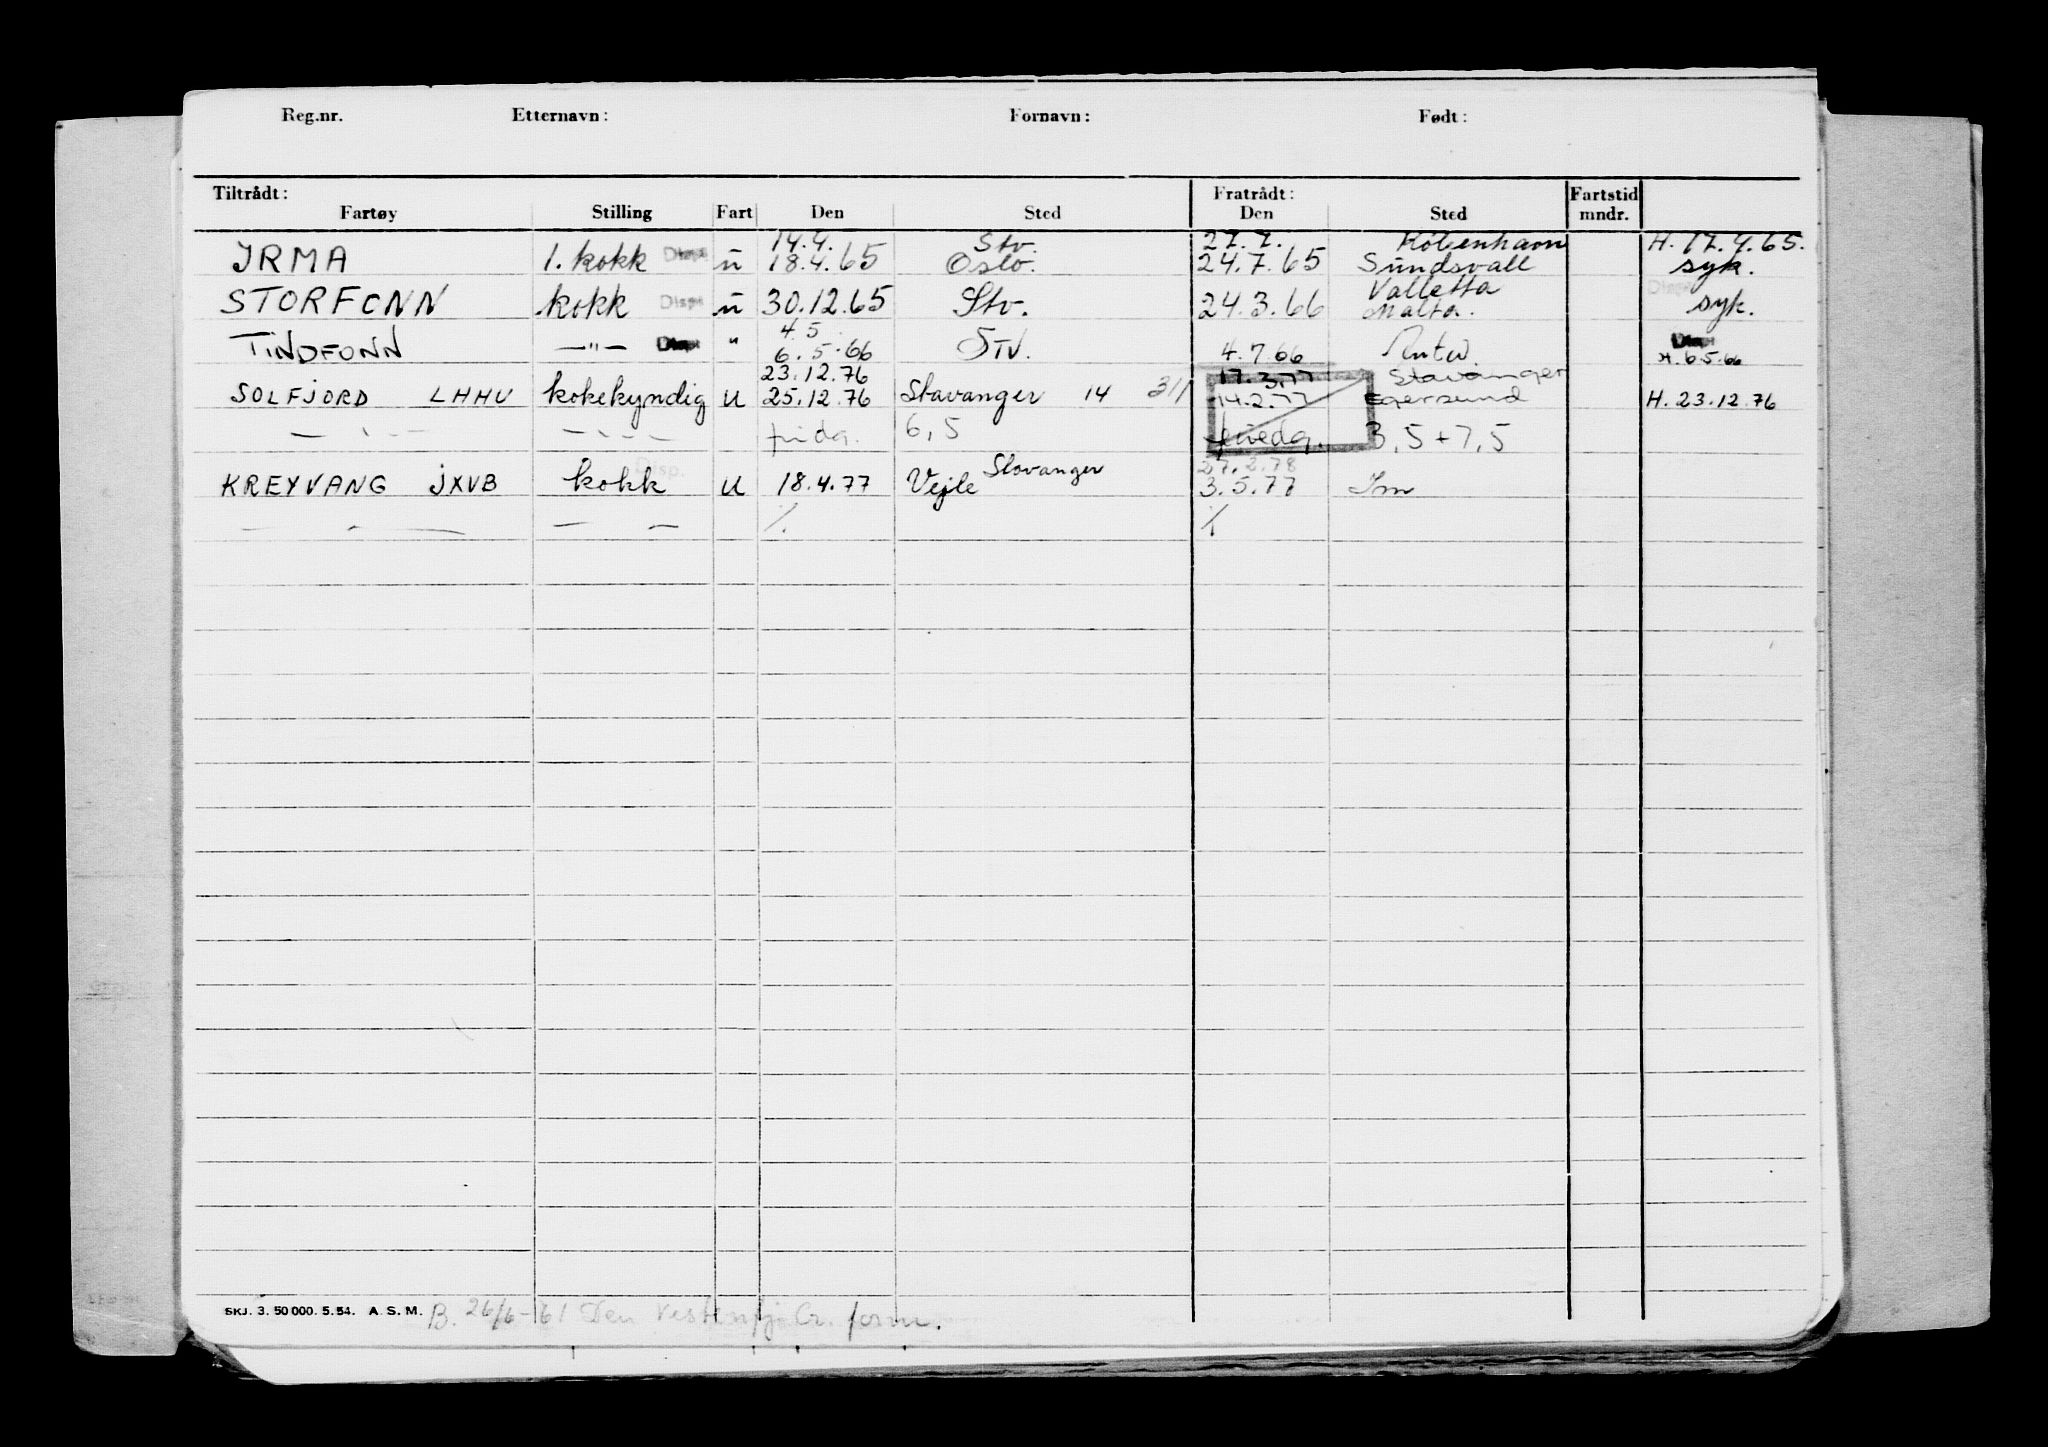 Reg.nr. Etternavn: Fornavn: Født:
Tiltrådt: Fratrådt: Fartstid
Fartøy Stilling Fart Den Sted Den Sted mndr.
14.4. Stv. 27.7. København H. 17.4.65.
IRMA 1. kokk Disp ü 18.4.65 Oslo. 24.7.65 Sundsvall syk.
Valletta
STORFONN kokk Disp ü 30.12.65 Stv. 24.3.66 Malta. syk.
4.5 Disp
TINDFONN —"— Disp " 6.5.66 Stv. 4.7.66 Antw. H. 6.5.66
23.12.76 17.3.77 Stavanger
SOLFJORD LHHU kokekyndig U 25.12.76 Stavanger 14 3/1 14.2.77 Egersund H. 23.12.76
— " — — " — 6,5 3,5+7,5
Disp. Stavanger 27.2.78
KREYVANG JXVB kokk U 18.4.77 Vejle 3.5.77 Im
— " — — — % %
SKJ. 3. 50 000. 5. 54. A. S. M. B. 26/6-61 Den form.